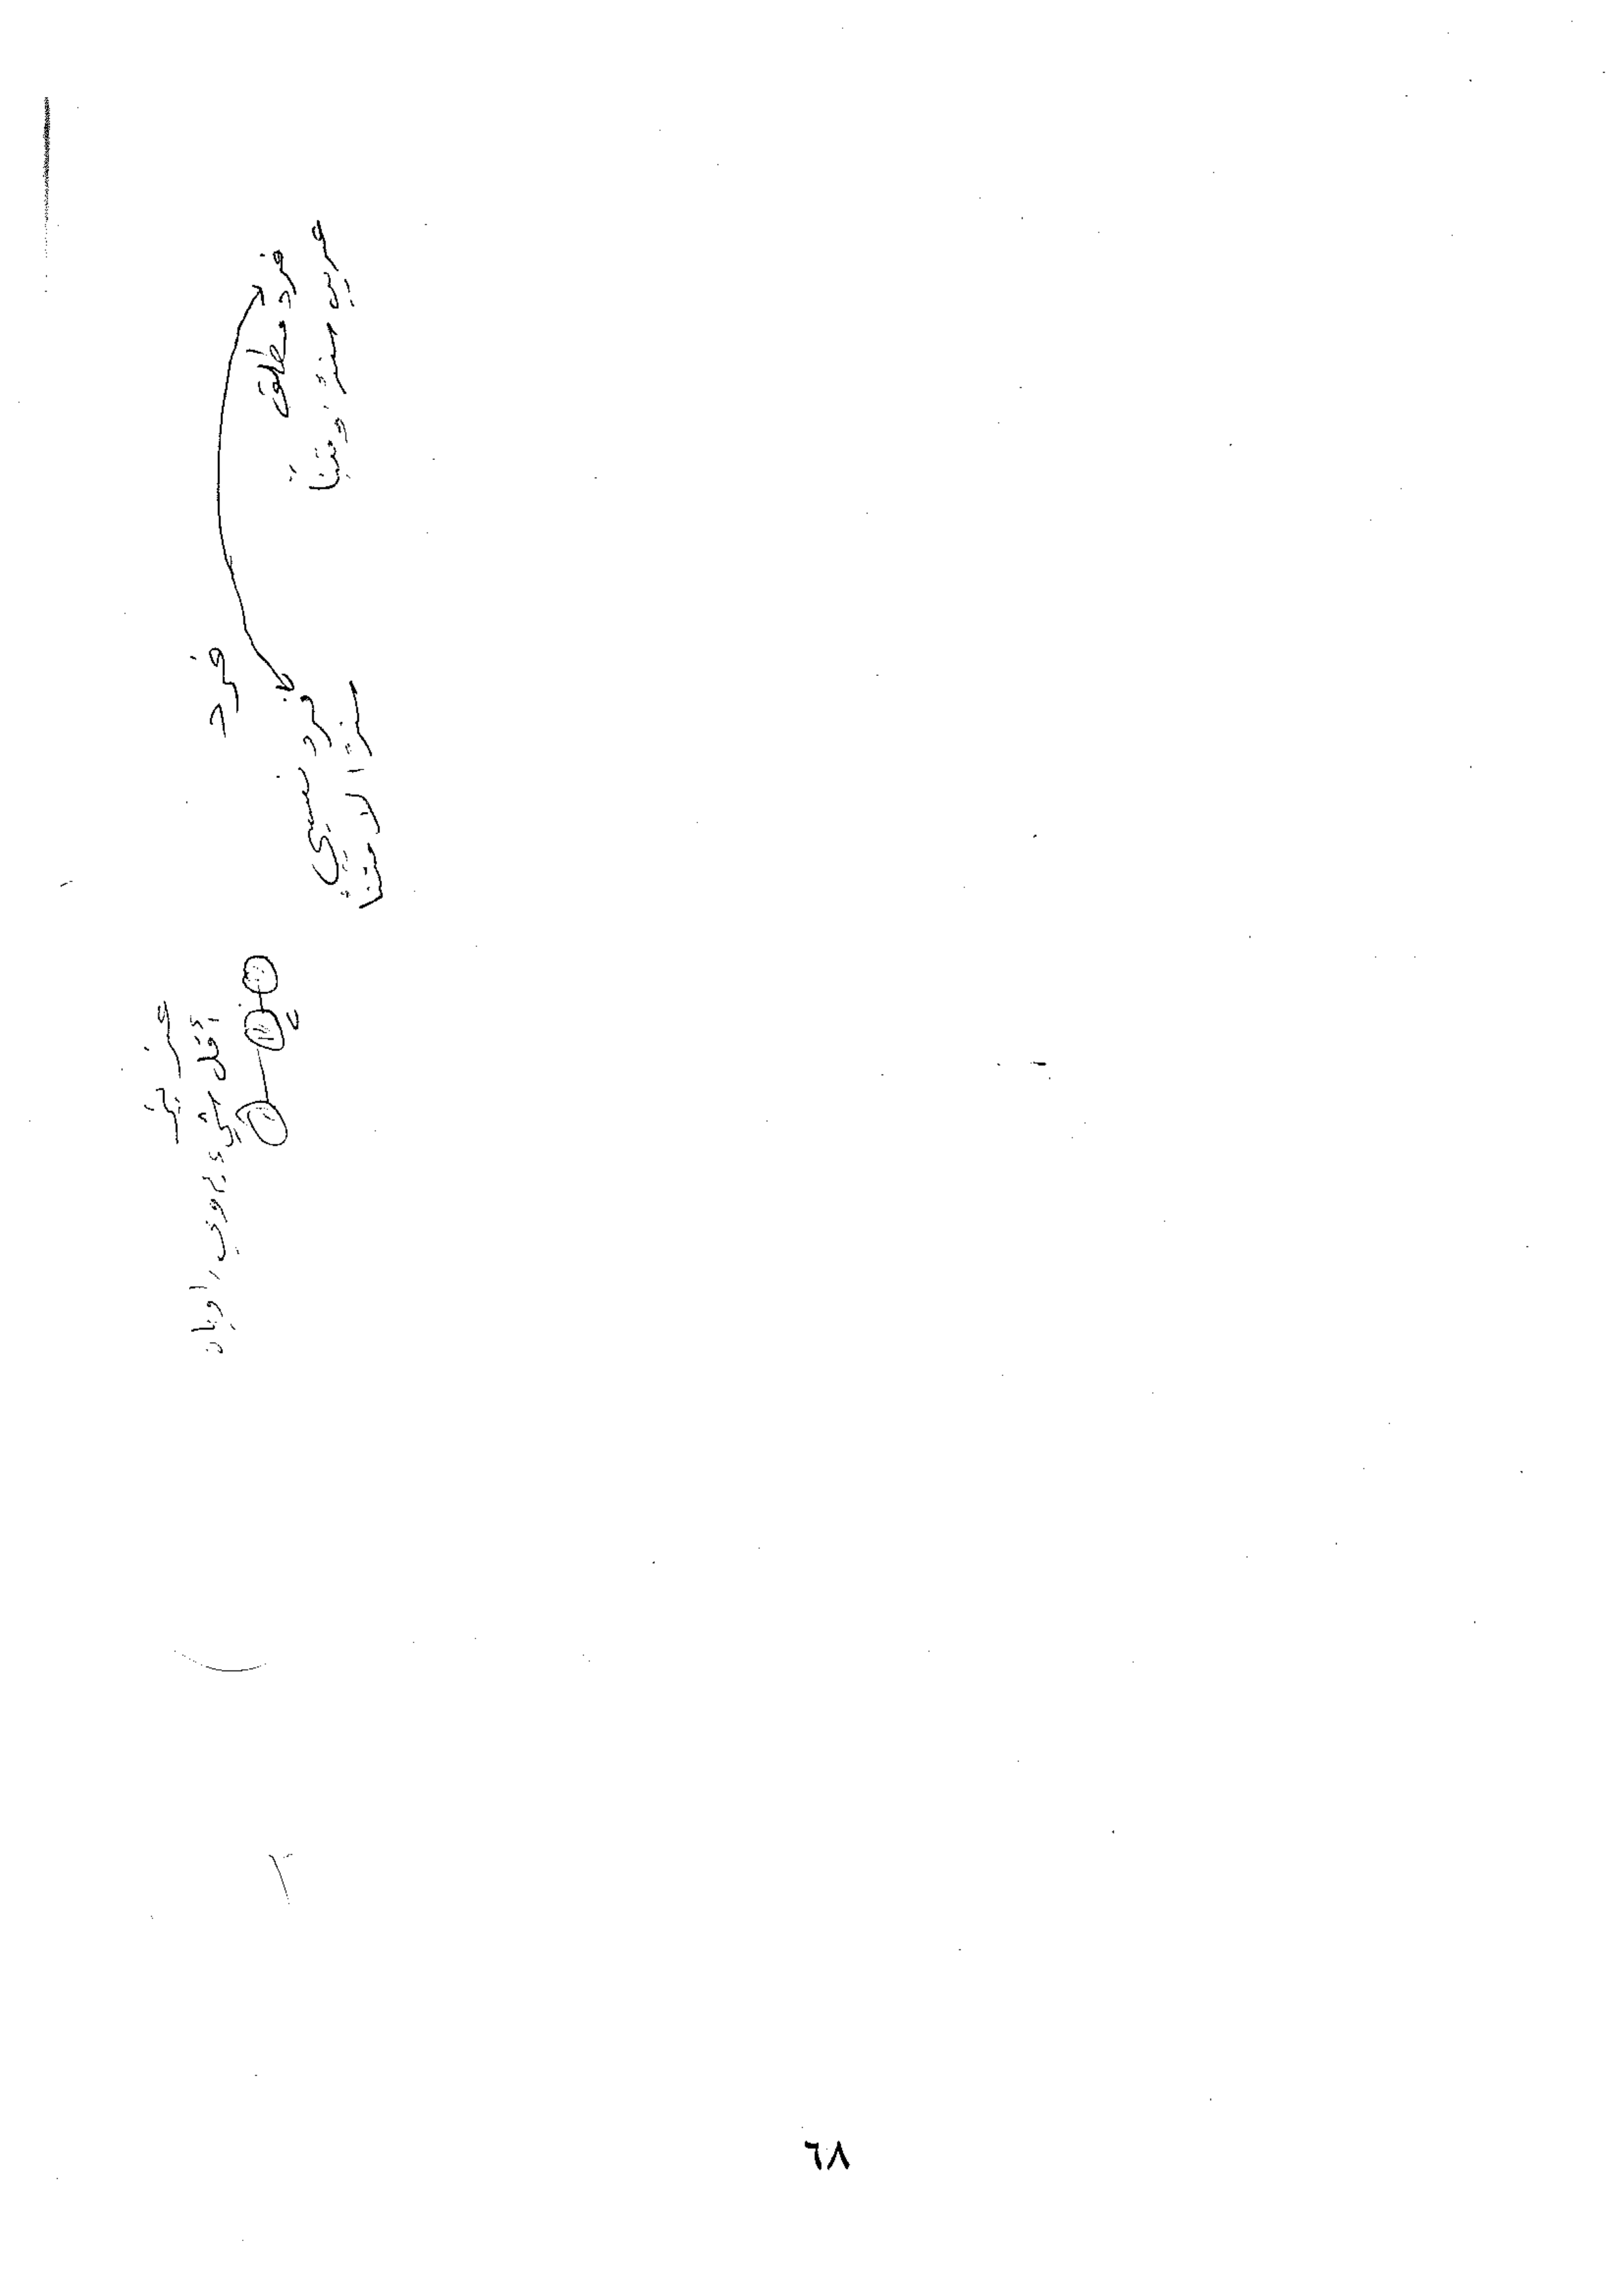 عزيز
أقل شيء يروي راويان
فرد
فرد مطلق
غريب سندًا ومتنًا
فرد نسبي
سندًا لا متنًا
٦٨